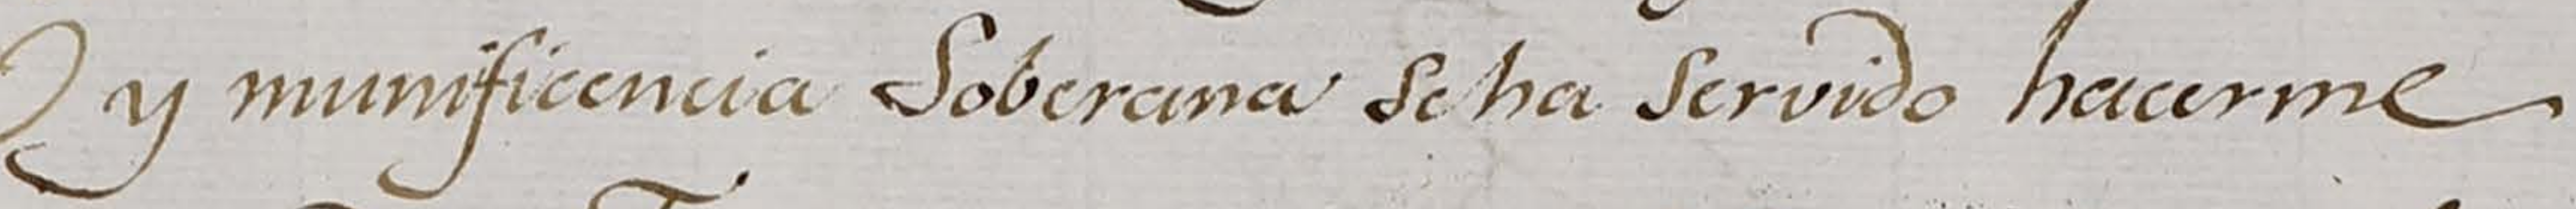 y munificencia Soberana se ha Servido hacerme